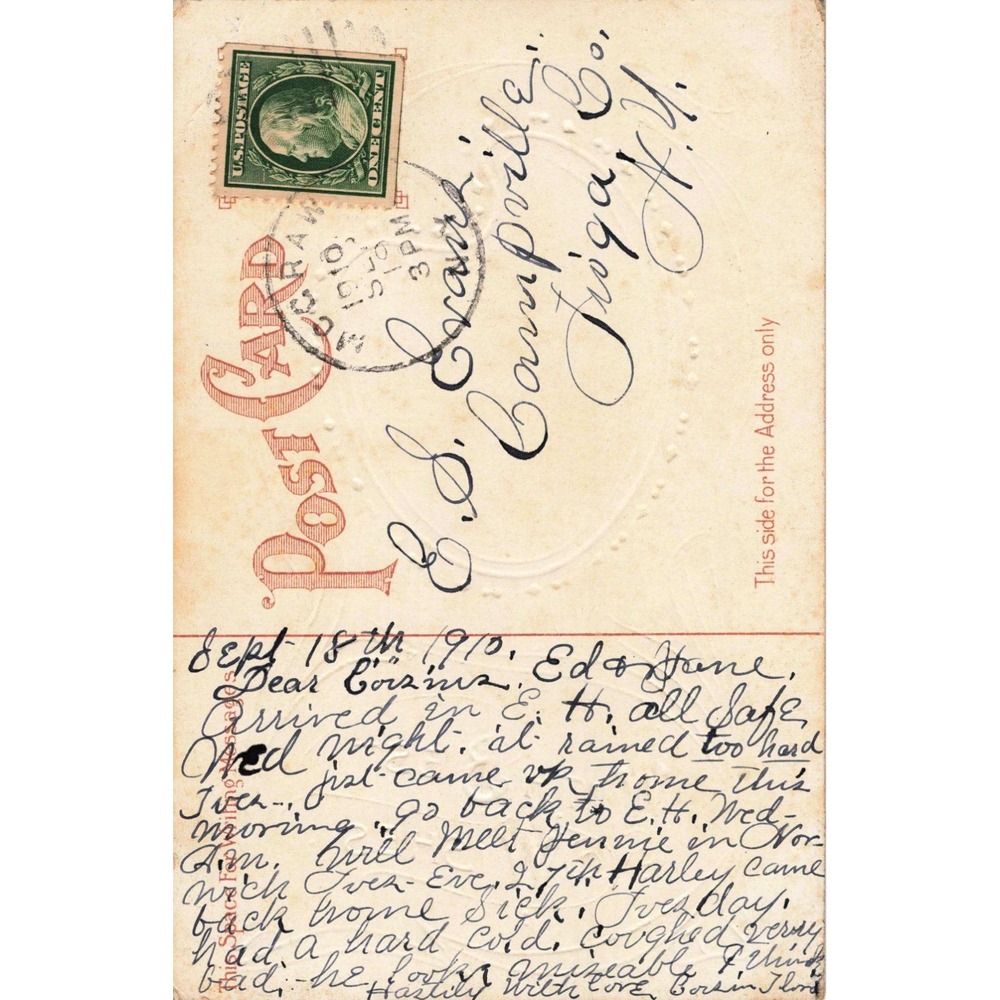 U.S. POSTAGE
ONE CENT
MCGRAW
1910
SEP
19
3 PM
POST CARD
E. S. Evans
Campville
Tioga, Co.
N.Y.
This side for the Address only
This Space For Writing Messages
Sept 18th 1910.
Dear Coisins, Ed & Jane.
Arrived in E. H. all Safe
Wed night. it rained too hard
Tues-. jist came up home this
morning. go back to E.H. Wed-
A.m. Will Meet Jennie in Nor-
wich Tues- Eve. 27th Harley came
back home Sick. Tuesday.
had a hard cold. coughed verry
bad,- he looks mizeable I think
Hastily With Love Coisin